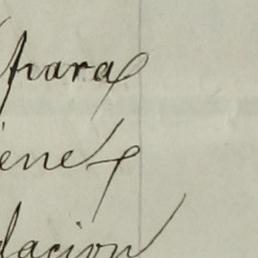 para
iene
dacion